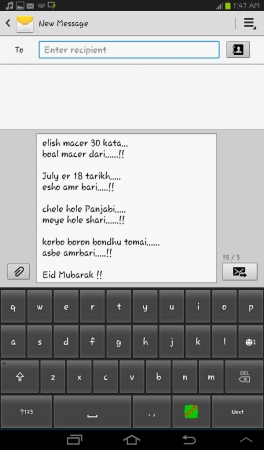 1:47 AM
New Message
To
Enter recipient
elish macer 30 kata...
boal macer dari......!!
July er 18 tarikh.....
esho amr bari.....!!
chele hole Panjabi.....
meye hole shari......!!
korbo boron bondhu tomai......
asbe amrbari.....!!
Eid Mubarak !!
15 / 3
q w e r t y u i o p
a s d f g h j k l
z x c v b n m DEL
?123 . , Next